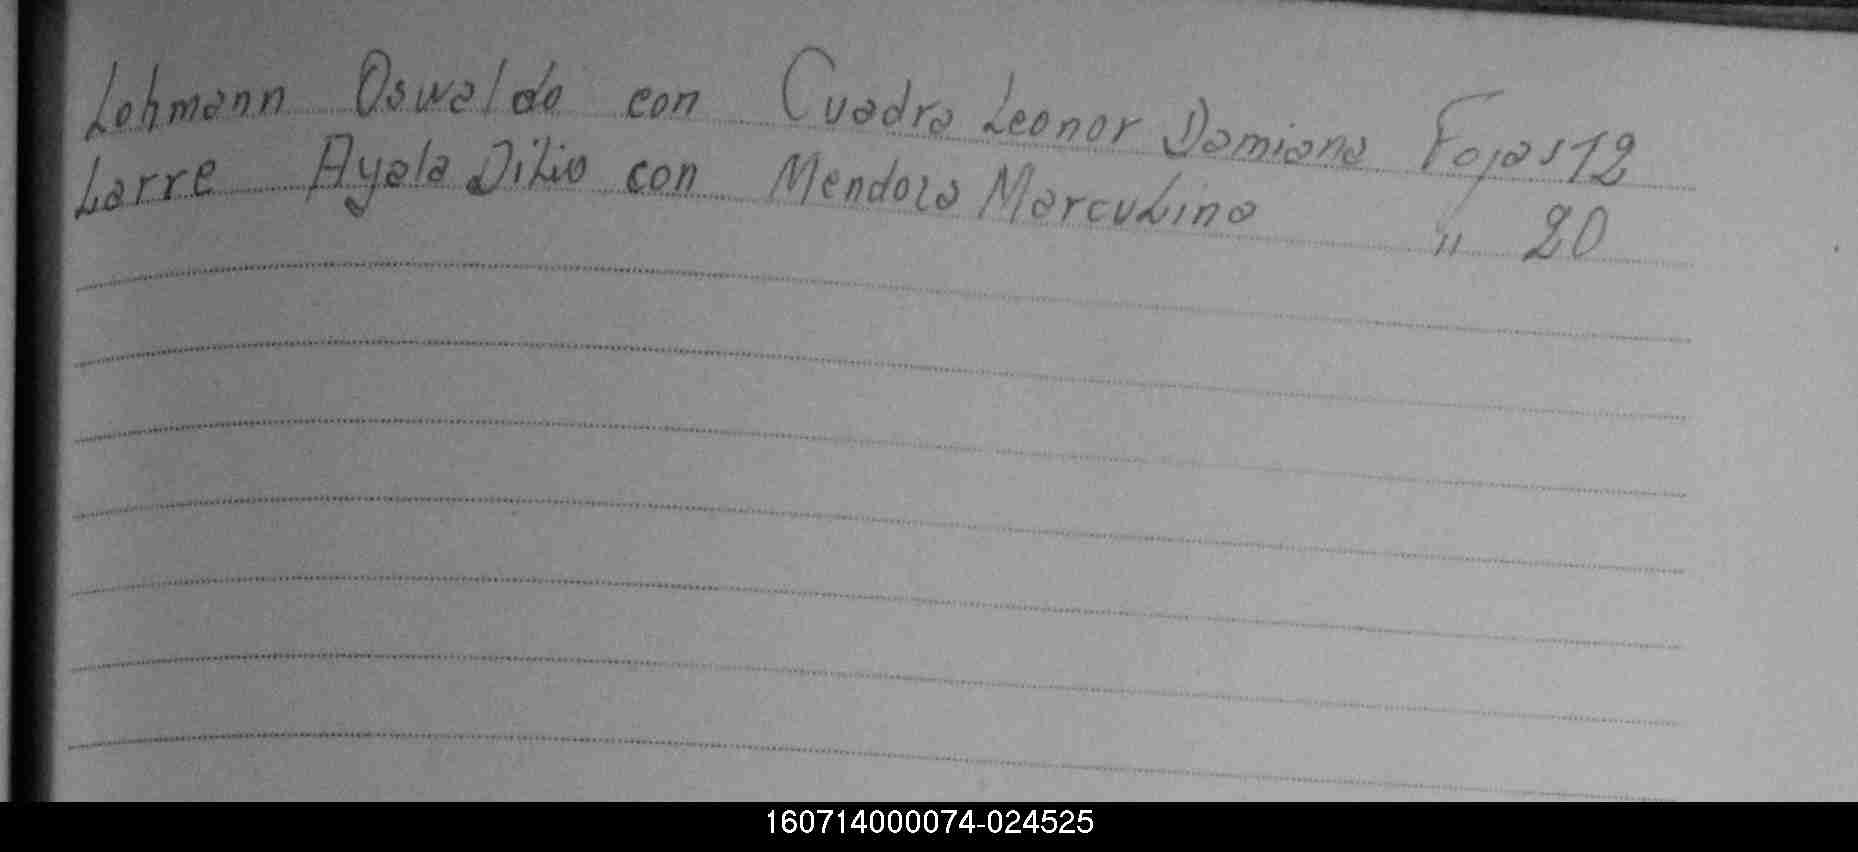 Lohmann Oswaldo con Cuadra Leonor Damiana Fojas 12
Larre Ayala Dilio con Mendoza Marculina " 20
160714000074-024525